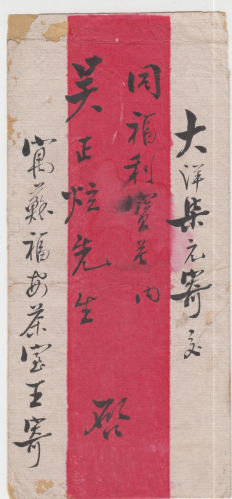 大洋柒元寄交
同福利寶号內
吴正炫先生 啟
寓蘇福安茶室王寄